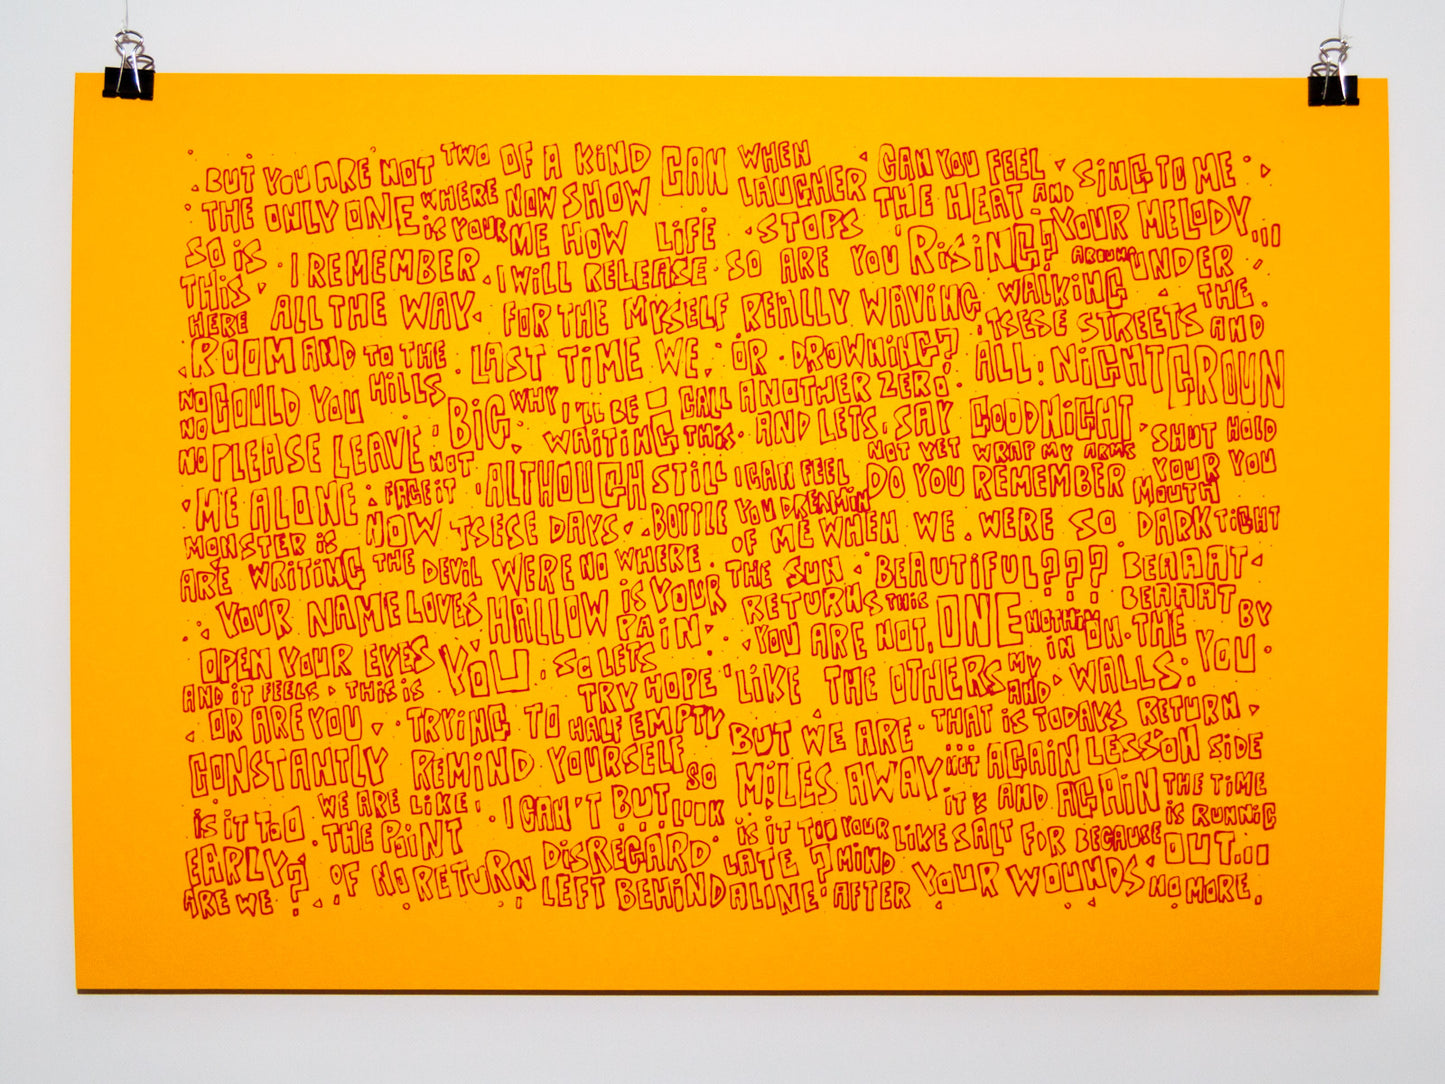 BUT YOU ARE NOT TWO OF A KIND CAN WHEN CAN YOU FEEL SING TO ME
THE ONLY ONE WHERE NOW SHOW LAUGHER THE HEAT AND
SO IS IS YOUR ME HOW LIFE STOPS YOUR MELODY...
THIS I REMEMBER I WILL RELEASE SO ARE YOU RISING? AROUND UNDER
HERE ALL THE WAY FOR THE MYSELF REALLY WAVING WALKING THE
ROOM AND TO THE LAST TIME WE. OR DROWNING? TSESE STREETS AND
NO COULD YOU HILLS BIG WHY I'LL BE CALL ANOTHER ZERO ALL NIGHT GROUN
NO PLEASE LEAVE WAITING THIS AND LETS SAY GOODNIGHT SHUT HOLD
NO NOT ALTHOUGH STILL I CAN FEEL NOT YET WRAP MY ARMS YOUR YOU
ME ALONE FACE IT NOW TSESE DAYS BOTTLE YOU DREAMIN DO YOU REMEMBER MOUTH
MONSTER IS THE DEVIL WERE NO WHERE OF ME WHEN WE WERE SO DARK TIGHT
ARE WRITING LOVES HALLOW IS YOUR THE SUN BEAUTIFUL??? BEAAAT
YOUR NAME PAIN RETURNS THIS ONE NOTHIN ON THE BEAAAT BY
OPEN YOUR EYES YOU SO LETS YOU ARE NOT, IN WALLS YOU
AND IT FEELS THIS IS TRY HOPE LIKE THE OTHERS MY AND
OR ARE YOU TRYING TO HALF EMPTY BUT WE ARE THAT IS TODAYS RETURN
CONSTANTLY REMIND YOURSELF SO MILES AWAY AGAIN LESSON SIDE
IS IT TOO WE ARE LIKE I CAN'T BUT LOOK IT'S AND AGAIN THE TIME
EARLY? THE POINT DISREGARD IS IT TOO YOUR LIKE SALT FOR BECAUSE IS RUNNIG
ARE WE OF NO RETURN LEFT BEHIND LATE? MIND YOUR WOUNDS OUT...
ALINE AFTER NO MORE.